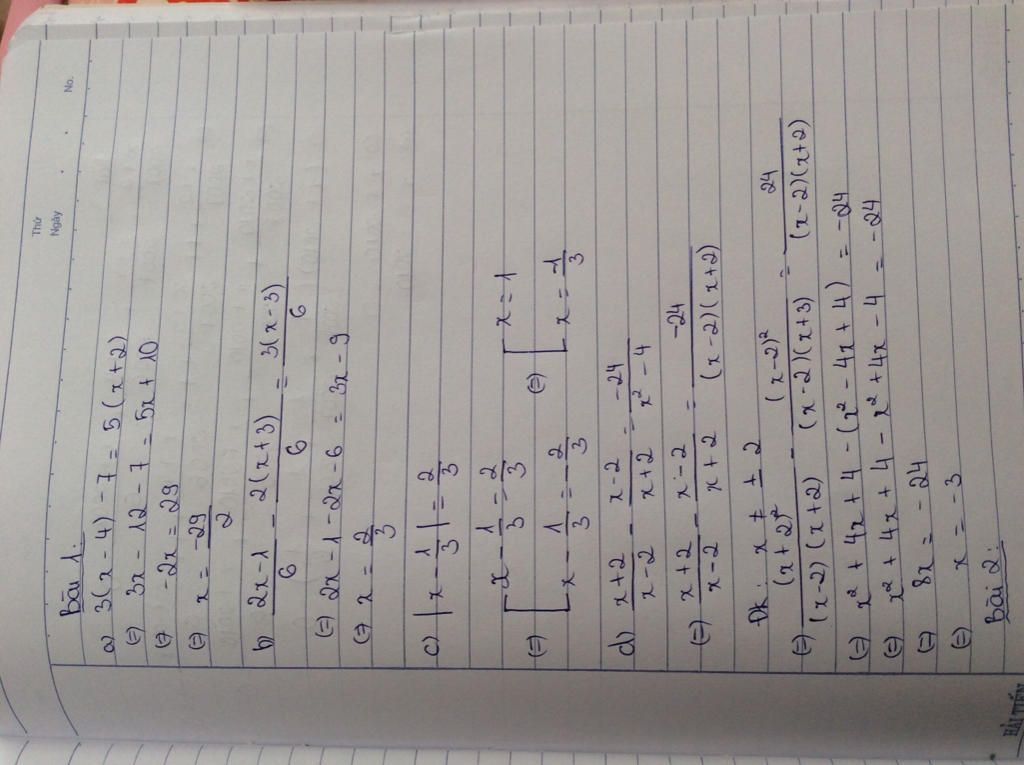 Thứ
Ngày
No.
Bài 1:
a) 3(x - 4) - 7 = 5(x + 2)
(=) 3x - 12 - 7 = 5x + 10
(=) -2x = 29
(=) x = -29/2
b) (2x - 1)/6 - 2(x + 3)/6 = 3(x - 3)/6
(=) 2x - 1 - 2x - 6 = 3x - 9
(=) x = 2/3
c) |x - 1/3| = 2/3
(=) [ x - 1/3 = 2/3 (=) [ x = 1
x - 1/3 = -2/3 x = -1/3
d) (x+2)/(x-2) - (x-2)/(x+2) = -24/(x² - 4)
(=) (x+2)/(x-2) - (x-2)/(x+2) = -24/((x-2)(x+2))
Đk: x ≠ ± 2
(=) (x+2)²/((x-2)(x+2)) - (x-2)²/((x-2)(x+3)) = 24/((x-2)(x+2))
(=) x² + 4x + 4 - (x² - 4x + 4) = -24
(=) x² + 4x + 4 - x² + 4x - 4 = -24
(=) 8x = -24
(=) x = -3
Bài 2:
HẢI TIẾN